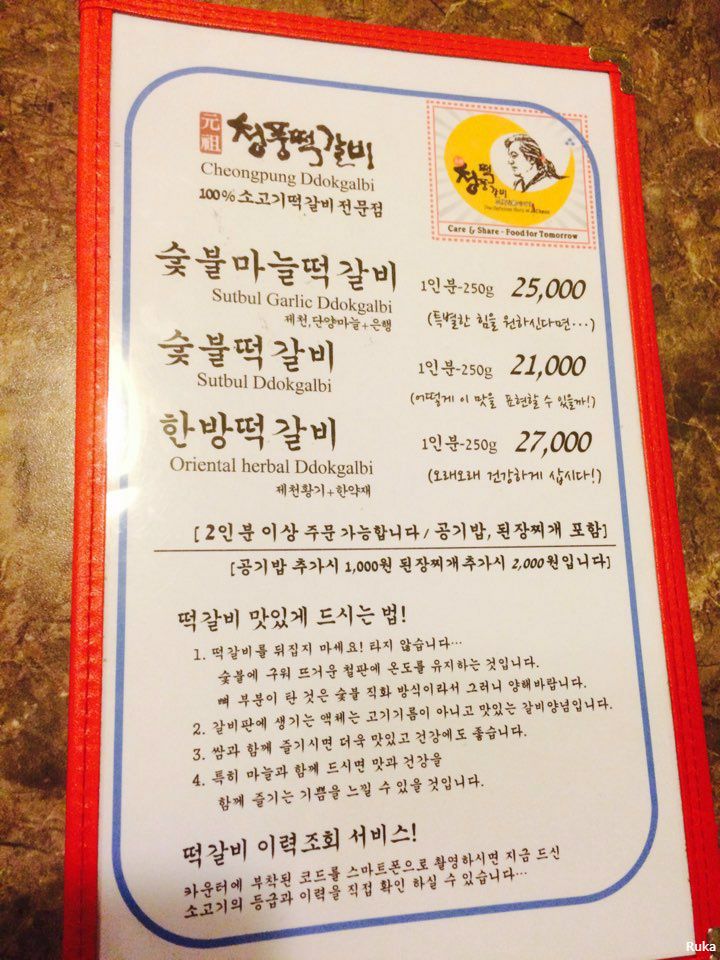 元祖
청풍떡갈비
Cheongpung Ddokgalbi
100% 소고기떡갈비 전문점
청풍떡갈비
Care & Share - Food for Tomorrow
숯불마늘떡갈비 1인분-250g 25,000
Sutbul Garlic Ddokgalbi (특별한 힘을 원하신다면···)
제천,단양마늘+은행
숯불떡갈비 1인분-250g 21,000
Sutbul Ddokgalbi (어떻게 이 맛을 표현할 수 있을까!)
한방떡갈비 1인분-250g 27,000
Oriental herbal Ddokgalbi (오래오래 건강하게 삽시다!)
제천황기+한약재
[ 2인분 이상 주문 가능합니다 / 공기밥, 된장찌개 포함]
[공기밥 추가시 1,000원 된장찌개 추가시 2,000원입니다]
떡갈비 맛있게 드시는 법!
1. 떡갈비를 뒤집지 마세요! 타지 않습니다···
숯불에 구워 뜨거운 철판에 온도를 유지하는 것입니다.
뼈 부분이 탄 것은 숯불 직화 방식이라서 그러니 양해바랍니다.
2. 갈비판에 생기는 액체는 고기기름이 아니고 맛있는 갈비양념입니다.
3. 쌈과 함께 즐기시면 더욱 맛있고 건강에도 좋습니다.
4. 특히 마늘과 함께 드시면 맛과 건강을
함께 즐기는 기쁨을 느낄 수 있을 것입니다.
떡갈비 이력조회 서비스!
카운터에 부착된 코드를 스마트폰으로 촬영하시면 지금 드신
소고기의 등급과 이력을 직접 확인 하실 수 있습니다···
Ruka